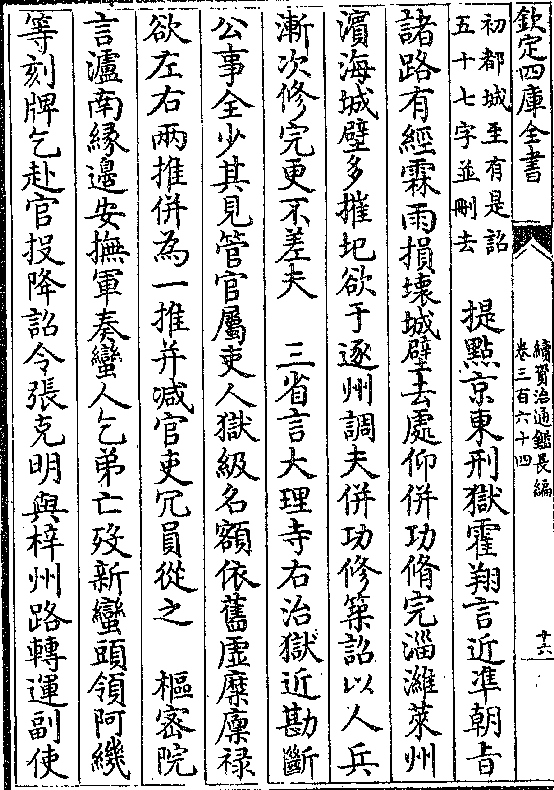 欽定四庫全書
續資治通鑑長編
卷三百六十四
十六
初都城至有是詔
五十七字並刪去
提㸃京東刑獄霍翔言近凖朝㫖
諸路有經霖雨損壞城壁去處仰併功脩完淄濰萊州
濱海城壁多摧圯欲于逐州調夫併功修築詔以人兵
漸次修完更不差夫　三省言大理寺右治獄近勘斷
公事全少其見管官屬吏人獄級名額依舊虛糜廩禄
欲左右兩推併為一推并减官吏冗員從之　樞密院
言瀘南緣邊安撫軍奏蠻人乞弟亡歿新蠻頭領阿機
等刻牌乞赴官投降詔令張克明與梓州路轉運副使